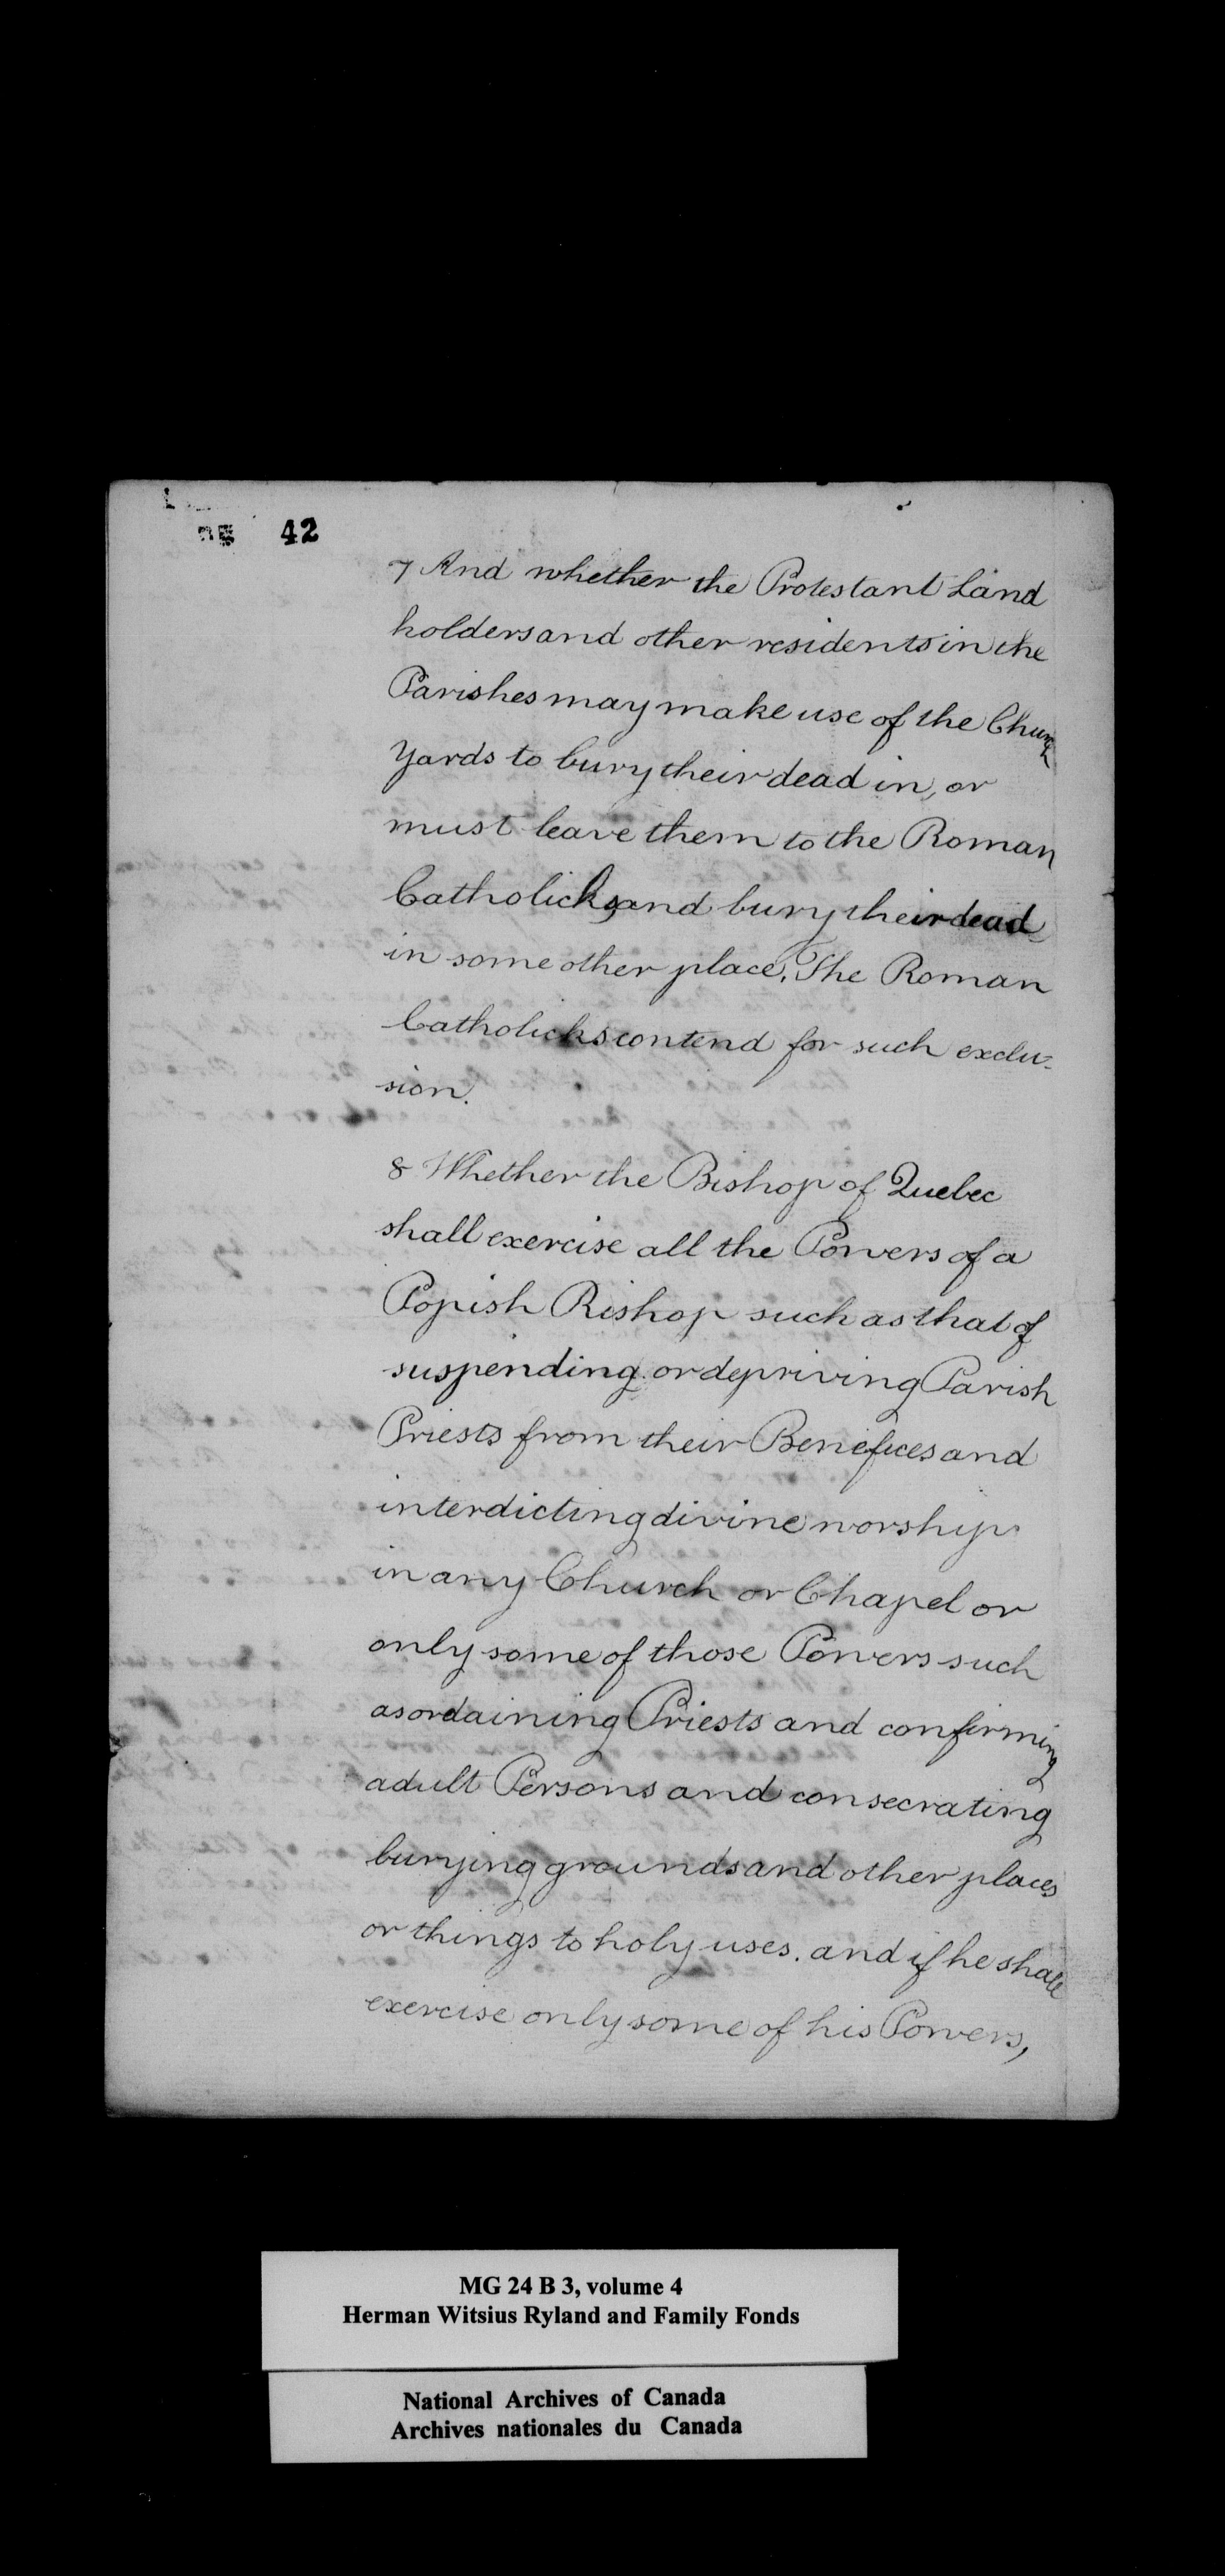 42
7 And whether the Protestant Land
holders and other residents in the
Parishes may make use of the Church
Yards to bury their dead in, or
must leave them to the Roman
Catholicks and bury their dead
in some other place. The Roman
Catholicks contend for such exclu-
sion.
8 Whether the Bishop of Quebec
shall exercise all the Powers of a
Popish Bishop such as that of
suspending or depriving Parish
Priests from their Benefices and
interdicting divine worship
in any Church or Chapel or
only some of those Powers such
as ordaining Priests and confirming
adult Persons and consecrating
burying grounds and other places
or things to holy uses. and if he shall
exercise only some of his Powers,
MG 24 B 3, volume 4
Herman Witsius Ryland and Family Fonds
National Archives of Canada
Archives nationales du Canada